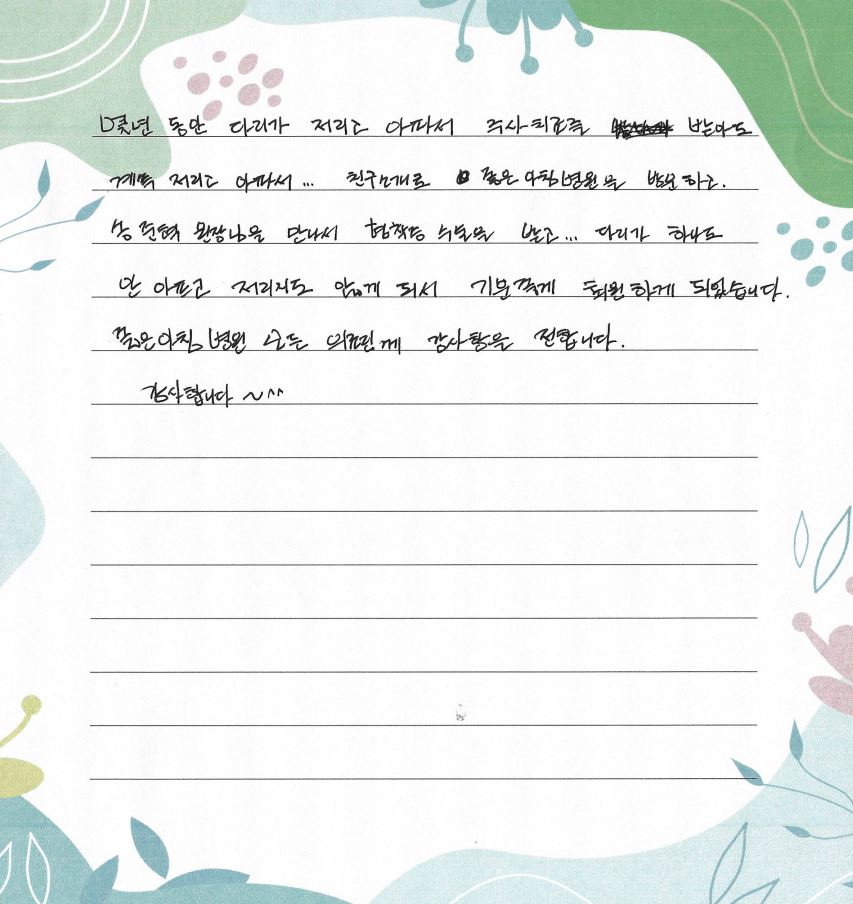 몇년 동안 다리가 저리고 아파서 주사치료를 받아도
계속 저리고 아파서... 친구소개로 좋은아침병원을 방문하고.
송준혁 원장님을 만나서 협착증 수술을 받고... 다리가 하나도
안 아프고 저리지도 않게 되서 기분좋게 퇴원하게 되었습니다.
좋은아침병원 모든 의료진께 감사함을 전합니다.
감사합니다 ~^^